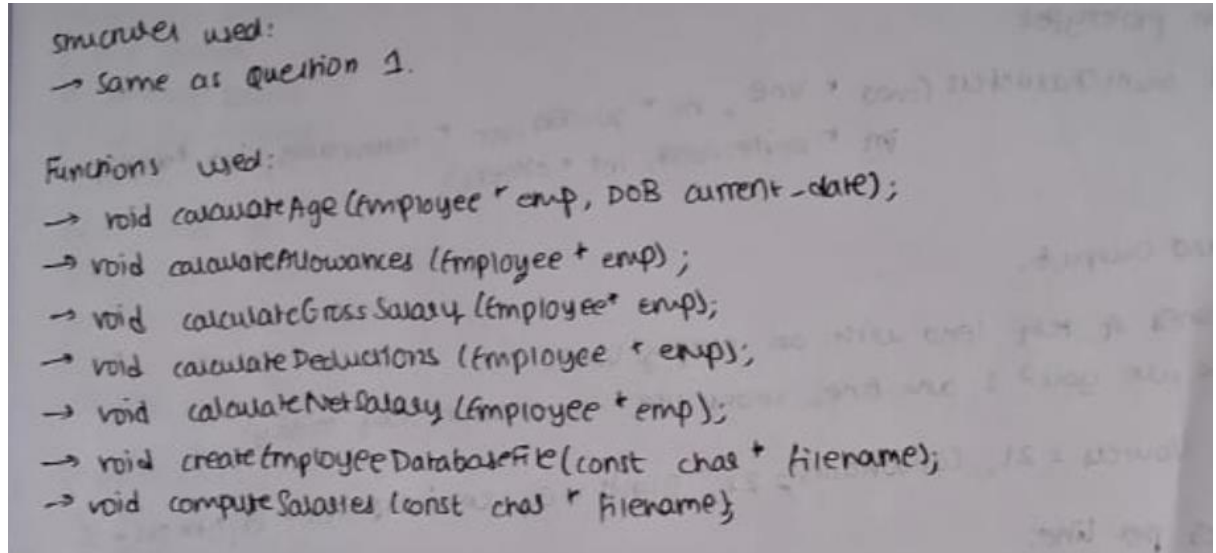 structures used:
→ Same as Question 1.
Functions used:
→ void calculateAge (Employee * emp, DOB current_date);
→ void calculateAllowances (Employee * emp);
→ void calculateGrossSalary (Employee* emp);
→ void calculateDeductions (Employee * emp);
→ void calculateNetSalary (Employee * emp);
→ void createEmployeeDatabaseFile(const char * filename);
→ void computeSalaries (const char * filename);